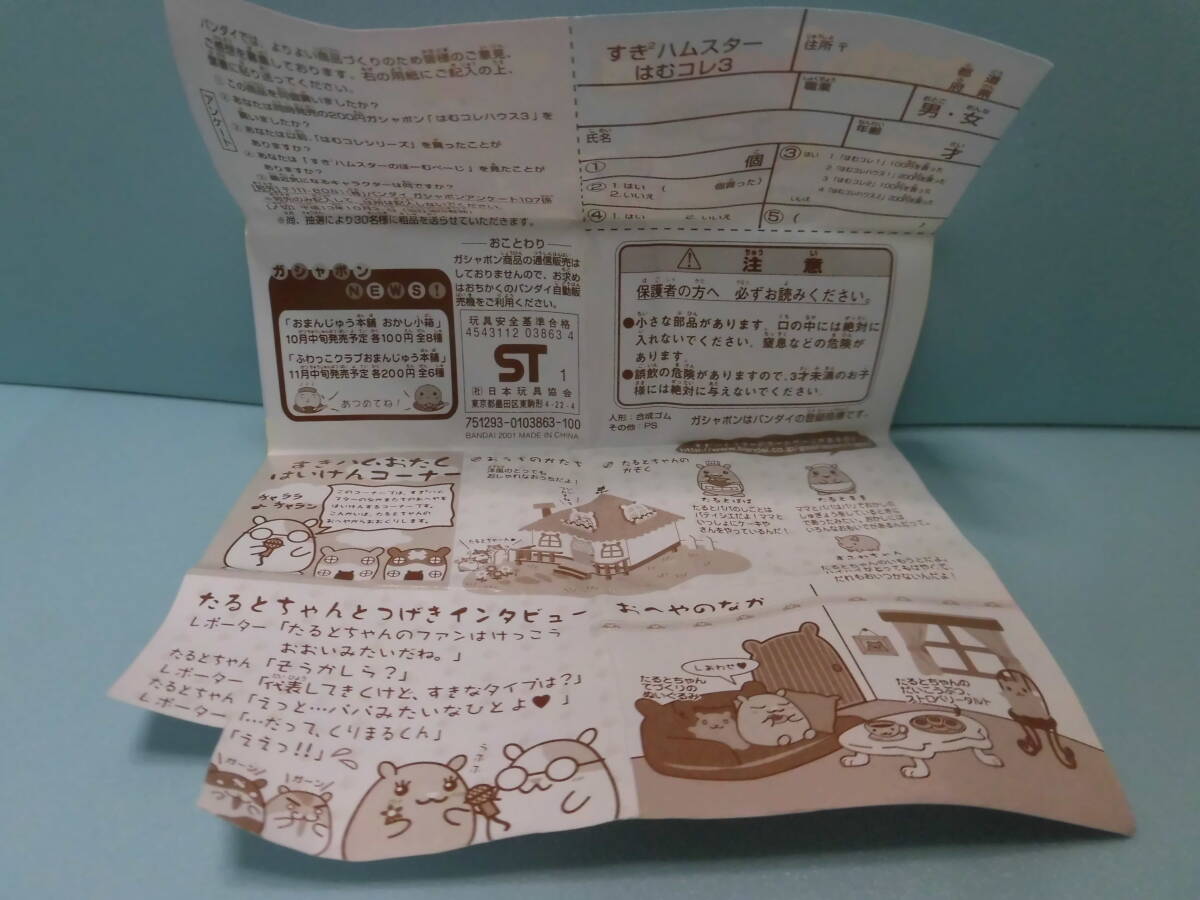 バンダイでは、よりよい商品づくりのため皆様のご意見、
ご感想を募集しております。右の用紙にご記入の上、
葉書に貼り送ってください。
アンケート
①この商品を何個買いましたか?
②あなたは同時発売の200円ガシャポン「はむコレハウス3」を
買いましたか?
③あなたは以前、「はむコレシリーズ」を買ったことが
ありますか?
④あなたは「すき²ハムスターのほーむぺーじ」を見たことが
ありますか?
⑤最近気になるキャラクターは何ですか?
(株)バンダイ ガシャポンアンケート107係
※尚、抽選により30名様に粗品を送らせていただきます。
すき²ハムスター
はむコレ3
住所 〒
都道
府県
職業
男・女
氏名
年齢
才
① 個
② 1.はい ( 個買った)
2.いいえ
③ はい 1.「はむコレ1」100円を買った
2.「はむコレハウス1」200円を買った
3.「はむコレ2」100円を買った
4.「はむコレハウス2」200円を買った
いいえ
④ 1.はい 2.いいえ
⑤ (
ガシャポン
NEWS!
「おまんじゅう本舗 おかし小箱」
10月中旬発売予定 各100円 全8種
「ふわっこクラブおまんじゅう本舗」
11月中旬発売予定 各200円 全6種
あつめてね!
おことわり
ガシャポン商品の通信販売は
しておりませんので、お求め
はおちかくのバンダイ自動販
売機をご利用ください。
玩具安全基準合格
4543112 03863 4
ST 1
(社)日本玩具協会
東京都墨田区東駒形4-22-4
751293-0103863-100
BANDAI 2001 MADE IN CHINA
注意
保護者の方へ 必ずお読みください。
●小さな部品があります。口の中には絶対に
入れないでください。窒息などの危険が
あります。
●誤飲の危険がありますので、3才未満のお子
様には絶対に与えないでください。
人形:合成ゴム
その他:PS
ガシャポンはバンダイの登録商標です。
すきハくんおたく
はいけんコーナー
ウャララ
よ ウャラン
このコーナーでは、すき²ハム
スターのなかまたちのおへやを
はいけんするコーナーです。
こんかいは、たるとちゃんの
おへやからおおくりします。
おうちのかたち
洋風のとっても
おしゃれなおうちだよ!
たるとちゃんの
かぞく
たるとぱぱ
たるとパパのしごとは
パティシエだよ!ママと
いっしょにケーキや
さんをやっているんだ!
たるとまま
だれもおいつかないんだよ!
たるとちゃんとつげきインタビュー
レポーター「たるとちゃんのファンはけっこう
おおいみたいだね。」
たるとちゃん「そうかしら?」
レポーター「代表してきくけど、すきなタイプは?」
たるとちゃん「えっと…パパみたいなひとよ♥」
レポーター「…だって、くりまるくん」
「ええっ!!」
ガーン
ガーン
うふふ
おへやのなか
しあわせ♥
たるとちゃん
てづくりの
ぬいぐるみ
たるとちゃんの
だいこうぶつ、
ストロベリータルト